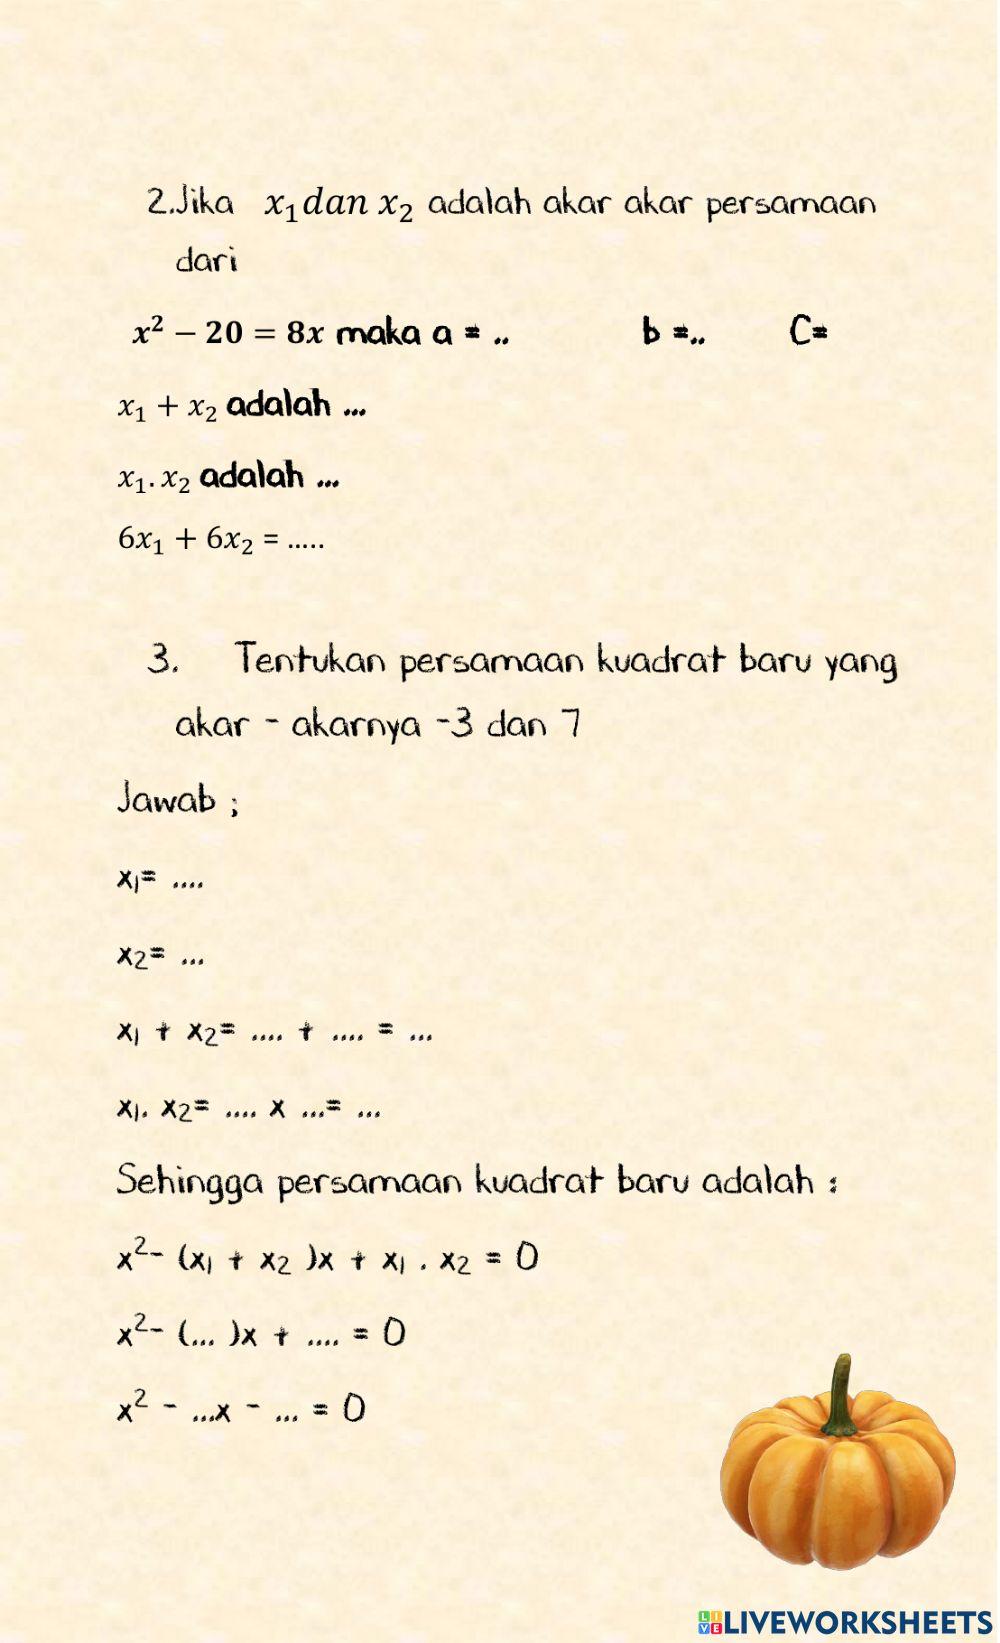 2.Jika x₁dan x₂ adalah akar akar persamaan
dari
x² − 20 = 8x maka a = .. b =.. C=
x₁ + x₂ adalah ...
x₁. x₂ adalah ...
6x₁ + 6x₂ = .....
3. Tentukan persamaan kuadrat baru yang
akar - akarnya -3 dan 7
Jawab ;
x₁= ....
x₂= ...
x₁ + x₂= .... + .... = ...
x₁. x₂= .... x ...= ...
Sehingga persamaan kuadrat baru adalah :
x²- (x₁ + x₂ )x + x₁ . x₂ = 0
x²- (... )x + .... = 0
x² - ...x - ... = 0
LIVE LIVEWORKSHEETS